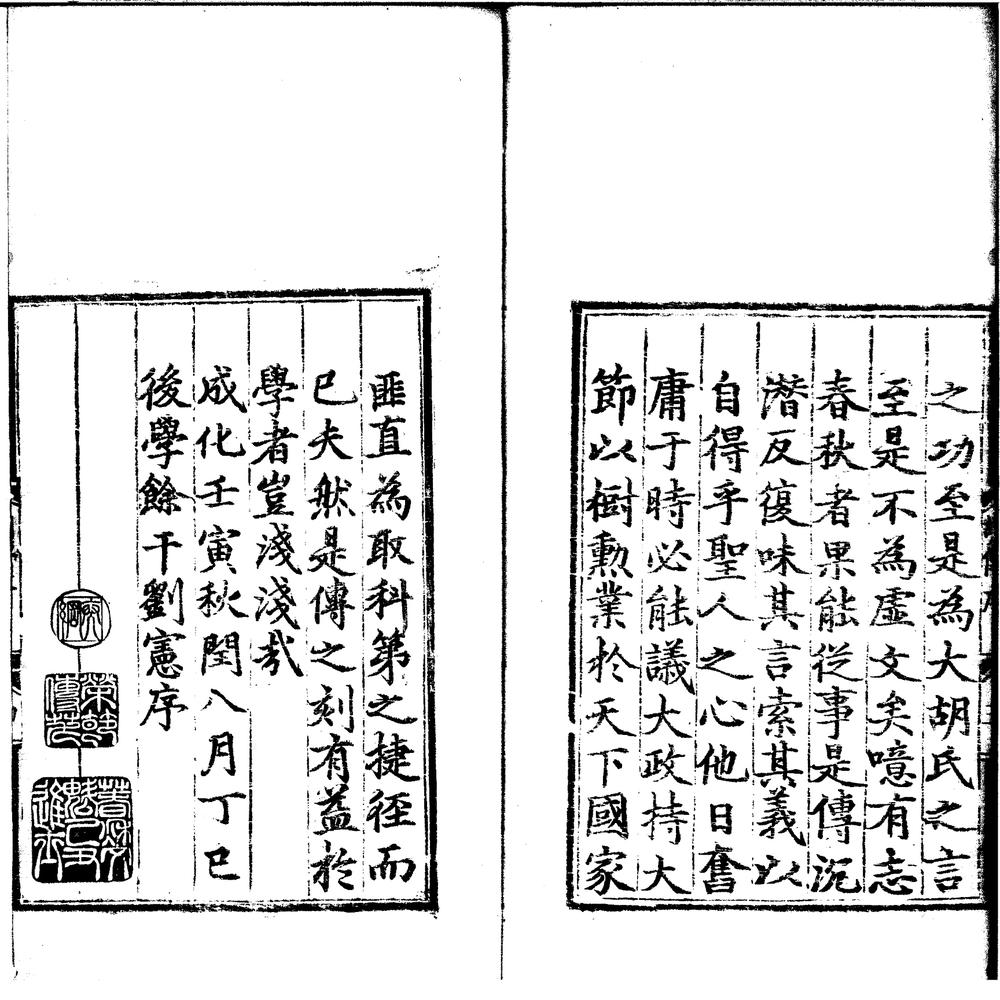 之功至是為大胡氏之言
至是不為虛文矣噫有志
春秋者果能從事是傳沉
潛反復味其言索其義以
自得乎聖人之心他日奮
庸于時必能議大政持大
節以樹勲業於天下國家
匪直為取科第之捷徑而
已夫然是傳之刻有益於
學者豈淺淺哉
成化壬寅秋閏八月丁巳
後學餘干劉憲序